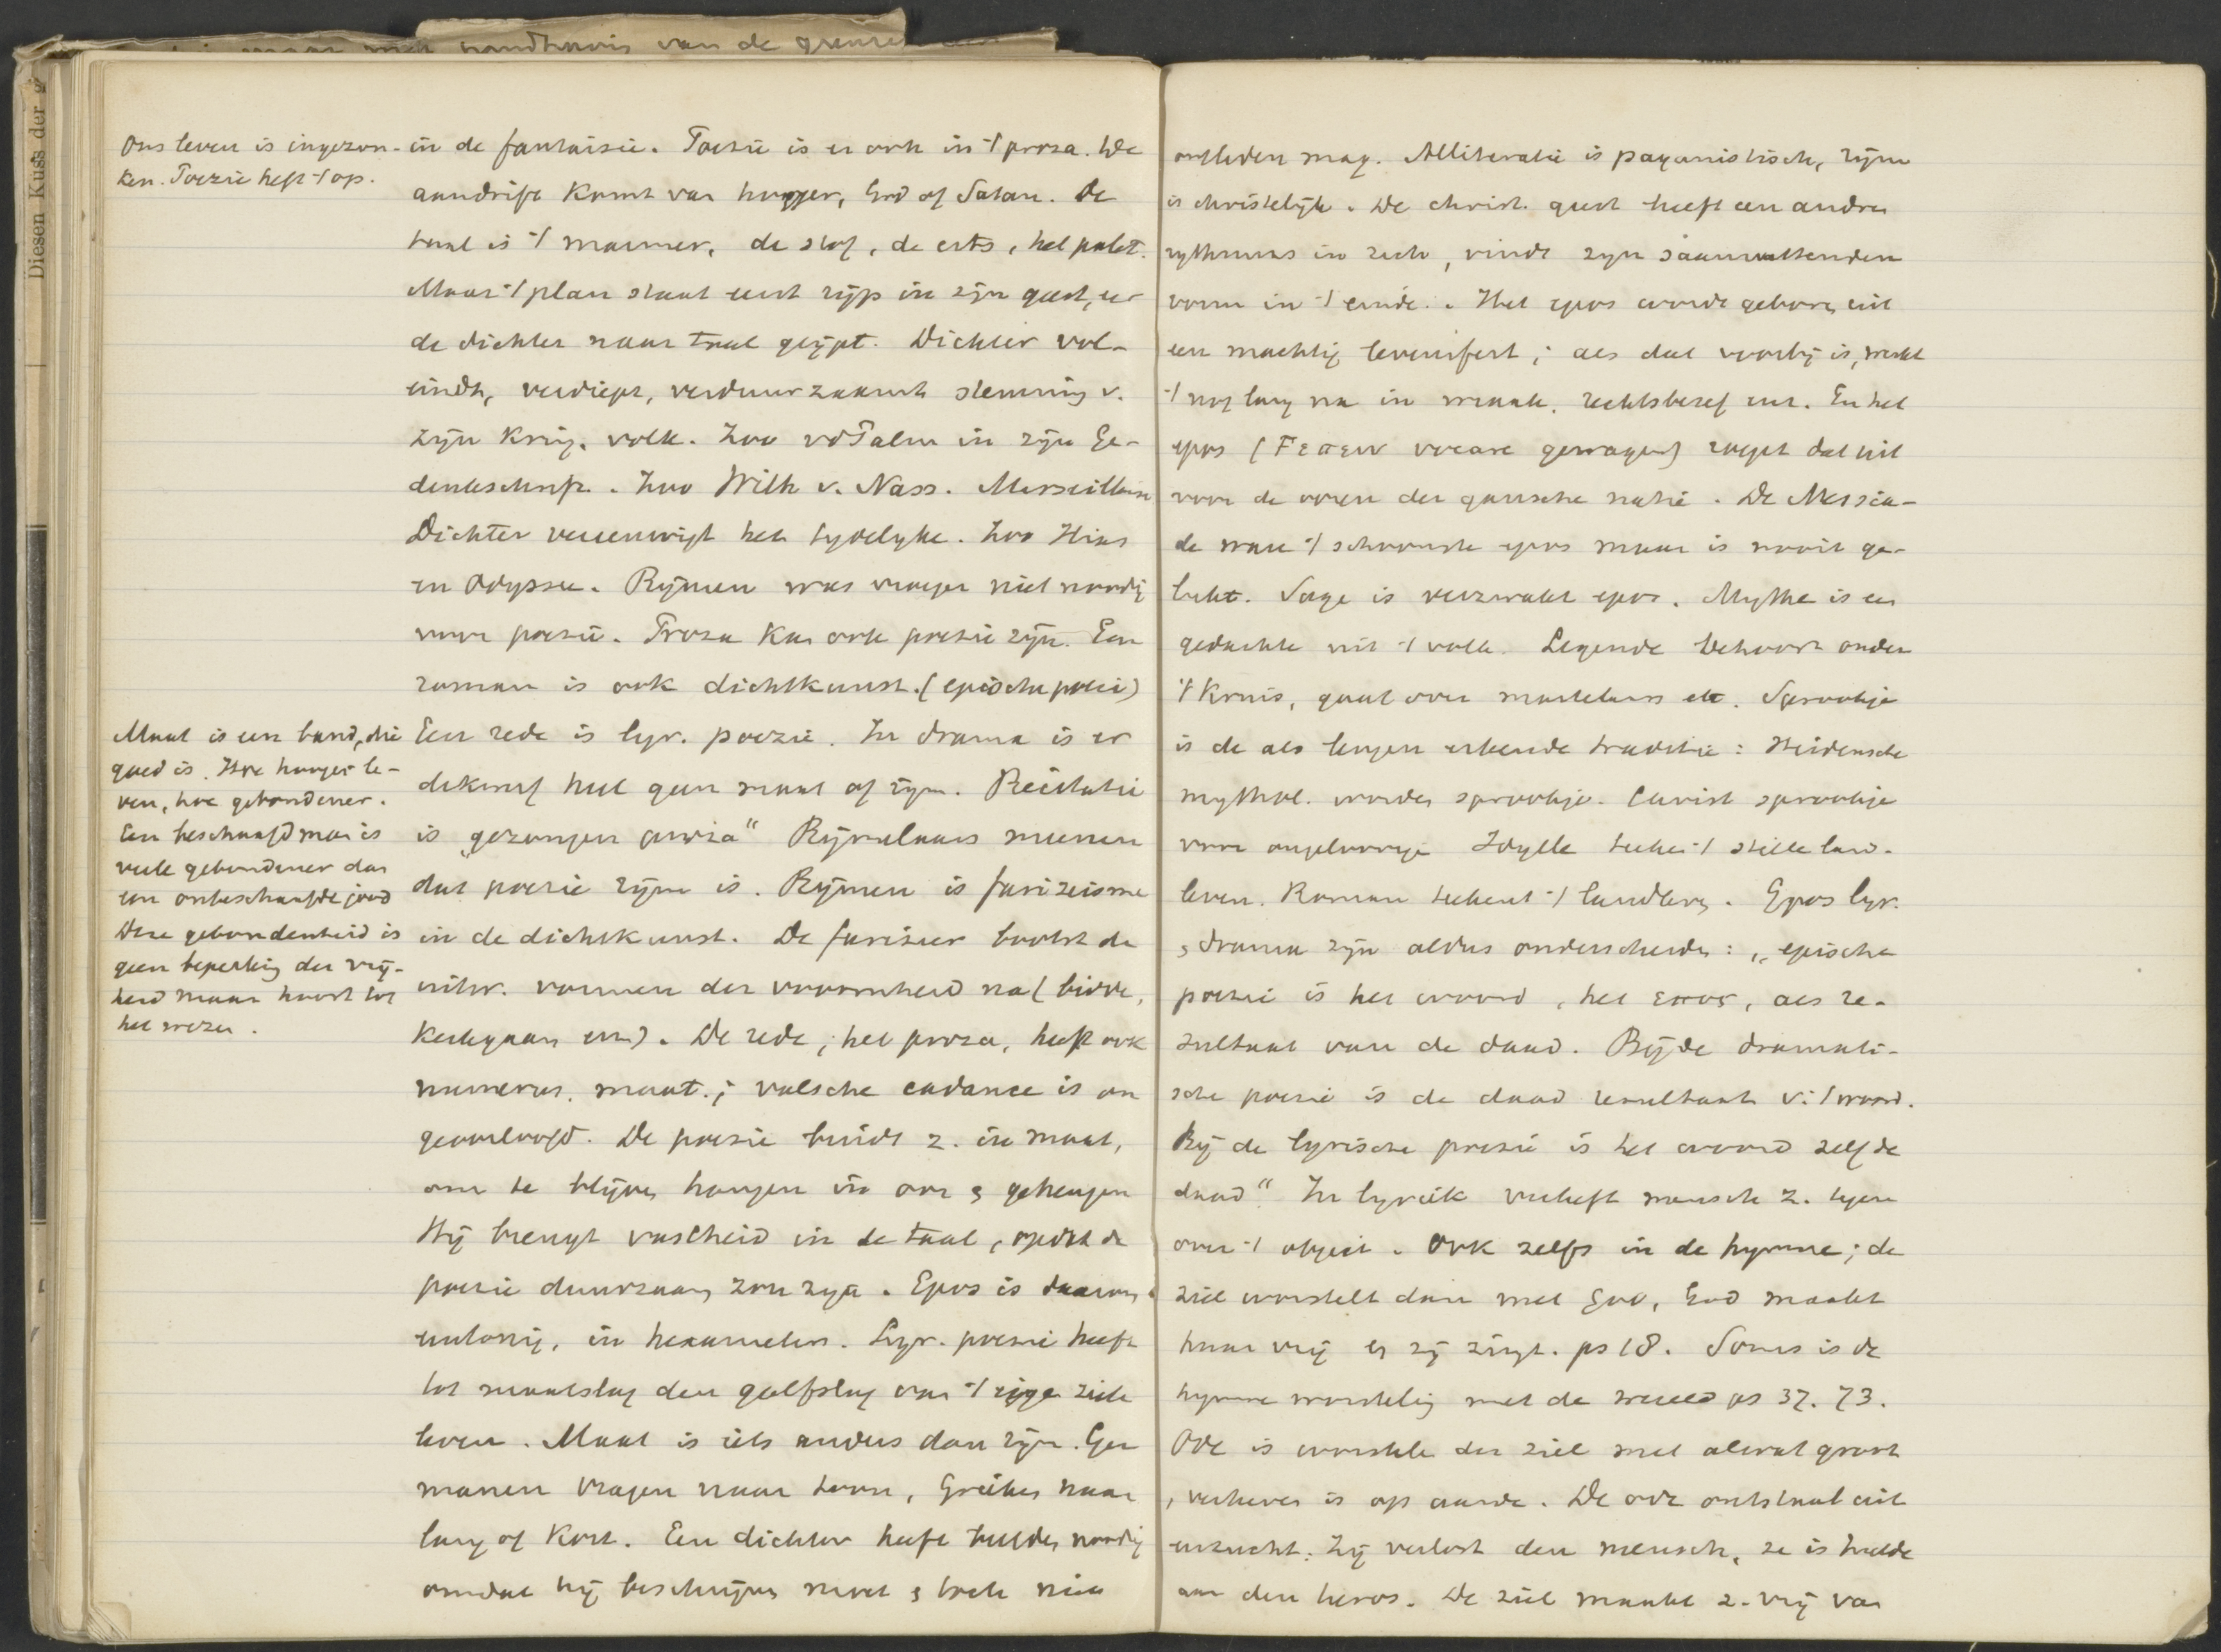 van de
Diesen Kuss der
Ons leven is ingezon-
ken. Poezie heft 't op.
in de fantaisie. Poezie is er ook in 't proza. De
aandrift komt van honger, God of Satan. De
taal is 't marmer, de stof, de erts, het palet.
Maar 't plan staat eerst rijp in zijn geest, eer
de dichter naar taal grijpt. Dichter vol-
eindt, verdiept, verduurzaamt stemming v.
zijn kring, volk. Zoo vdPalm in zijn Ge-
denkschrift. Zoo Wilh v. Nass. Marseillaise
Dichter vereeuwigt het tydelyke. Zoo Ilias
en Odyssee. Rijmen was vroeger niet noodig
voor poezie. Proza kan ook poezie zijn. Een
roman is ook dichtkunst. (epische poezie)
Maat is een band, die
goed is. Hoe hooger le-
ven, hoe gebondener.
Een beschaafd man is
veele gebondener dan
een onbeschaafde jood
Deze gebondenheid is
geen beperking der vrij-
heid maar hoort tot
het wezen.
Een rede is lyr. poezie. In drama is er
dikwerf heel geen maat of rijm. Recitatie
is „gezongen proza“ Rijmelaars meenen
dat poezie rijm is. Rijmen is farizeisme
in de dichtkunst. De farizeer bootst de
uitw. vormen der vroomheid na (bidde,
kerkgaan enz). De rede, het proza, heeft ook
numerus, maat; valsche cadance is on
geoorloofd. De poezie bindt z. in maat,
om te blijven hangen in oor & geheugen
Hij brengt vastheid in de taal, opdat de
poezie duurzaam zou zijn. Epos is daarom
eentonig, in hexameters. Lyr. poezie heeft
tot maatslag den golfslag van 't eigen ziele
leven. Maat is iets anders dan rijm. Ger
manen vragen naar toon, Grieken naar
lang of kort. Een dichter heeft beelden noodig
omdat hij beschrijven moet & toch niet
ontleden mag. Alliteratie is paganistisch, rijm
is christelijk. De christ. geest heeft een andren
rythmus in zich, vindt zijn saamvattenden
vorm in 't einde. Het epos wordt geboren uit
een machtig levensfeit; als dat voorbij is, werkt
't nog lang na in wraak, rechtsbesef enz. En het
epos (Fεπειν vocare gewagen) roept dat uit
voor de ooren der gansche natie. De Messia-
de ware 't schoonste epos maar is nooit ge-
lukt. Sage is verzwakt epos. Mythe is een
gedachte uit 't volk. Legende behoort onder
't Kruis, gaat over martelaars etc. Sprookje
is de als leugen erkende traditie: Heidensche
mythol. worden sprookje. Christ sprookje
voor ongeloovige Idylle teeken 't stille land-
leven. Roman teekent 't landleven. Epos lyr.
& drama zijn aldus onderscheiden: „epische
poezie is het woord, het επος, als re-
zultaat van de daad. Bij de dramati-
sche poezie is de daad resultaat v. 't woord.
Bij de lyrische poezie is het woord zelf de
daad“ In lyriek verheft mensch z. tegen
over 't object. Ook zelfs in de hymne; de
ziel worstelt dan met God, God maakt
haar vrij en zij zingt. ps 18. Soms is de
hymne worsteling met de wereld ps 37. 73.
Ode is worstele der ziel met alwat groot
& verheven is op aarde. De ode ontstaat uit
eerzucht. Zij verlost den mensch, ze is hulde
aan den heros. De ziel maakt z. vrij van